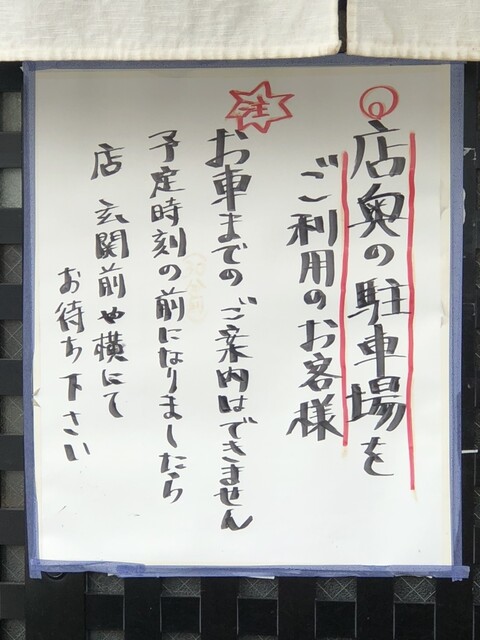 ◎店奥の駐車場を
ご利用のお客様
注
お車までのご案内はできません
予定時刻の前になりましたら
店玄関前や横にて
お待ち下さい